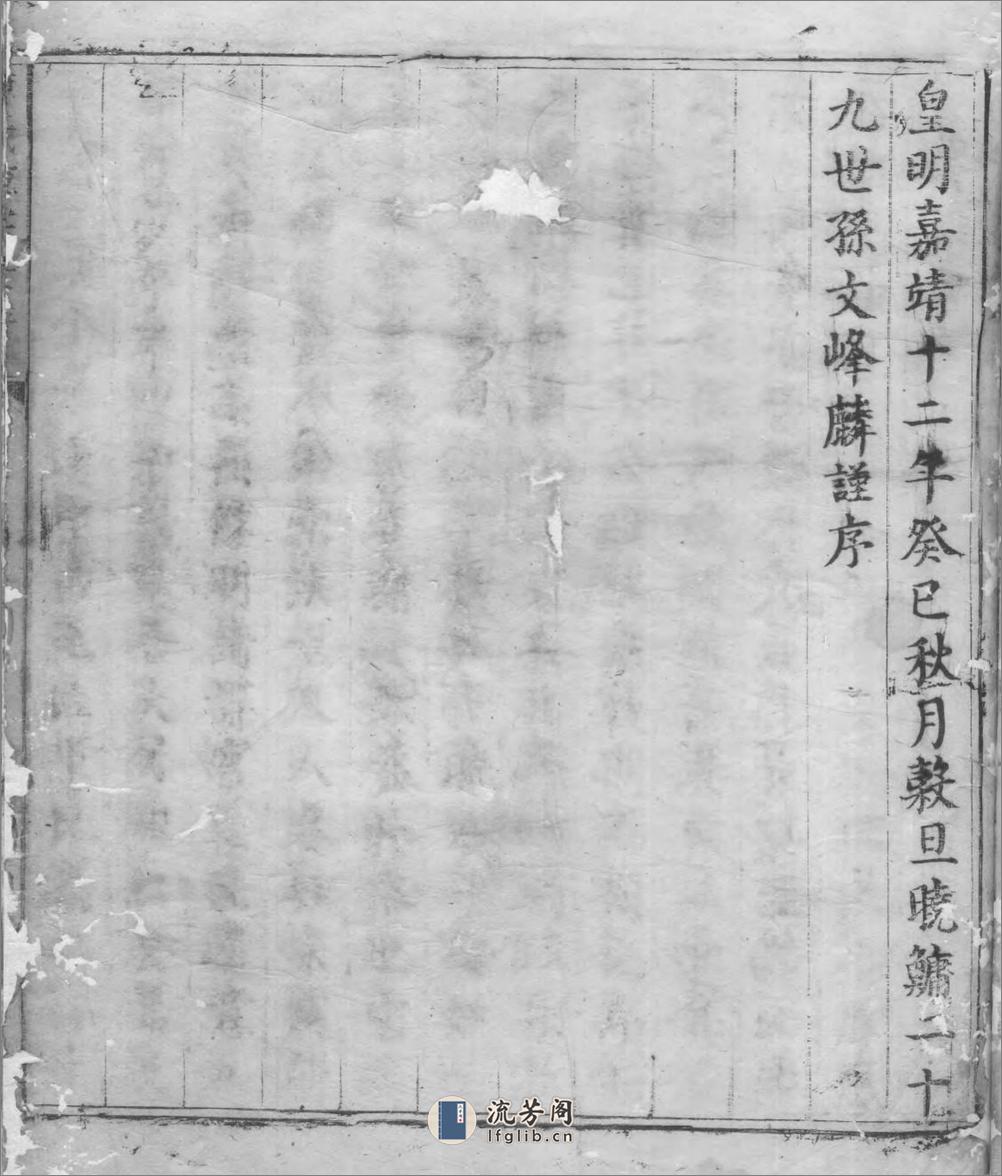 皇明嘉靖十二年癸巳秋月穀旦曉鱅二十
九世孫文峰麟謹序
流芳阁
lfglib.cn